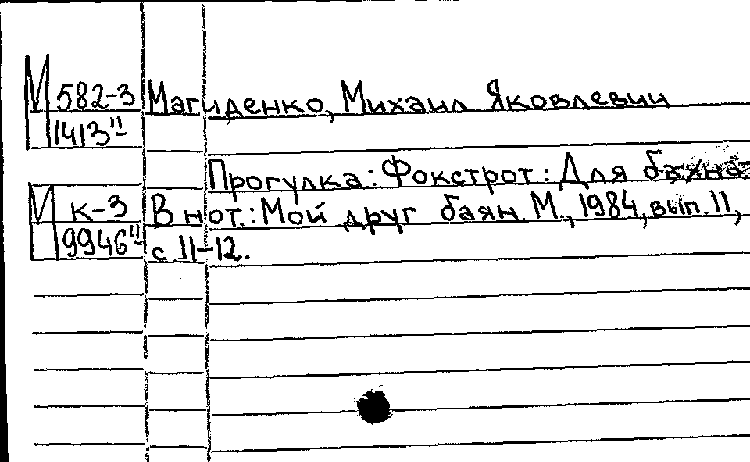 М 582-3 Магиденко, Михаил Яковлевич
1413"
Прогулка: Фокстрот: Для баяна
М к-3 В нот.: Мой друг баян М., 1984, вып. 11,
9946" с 11-12.